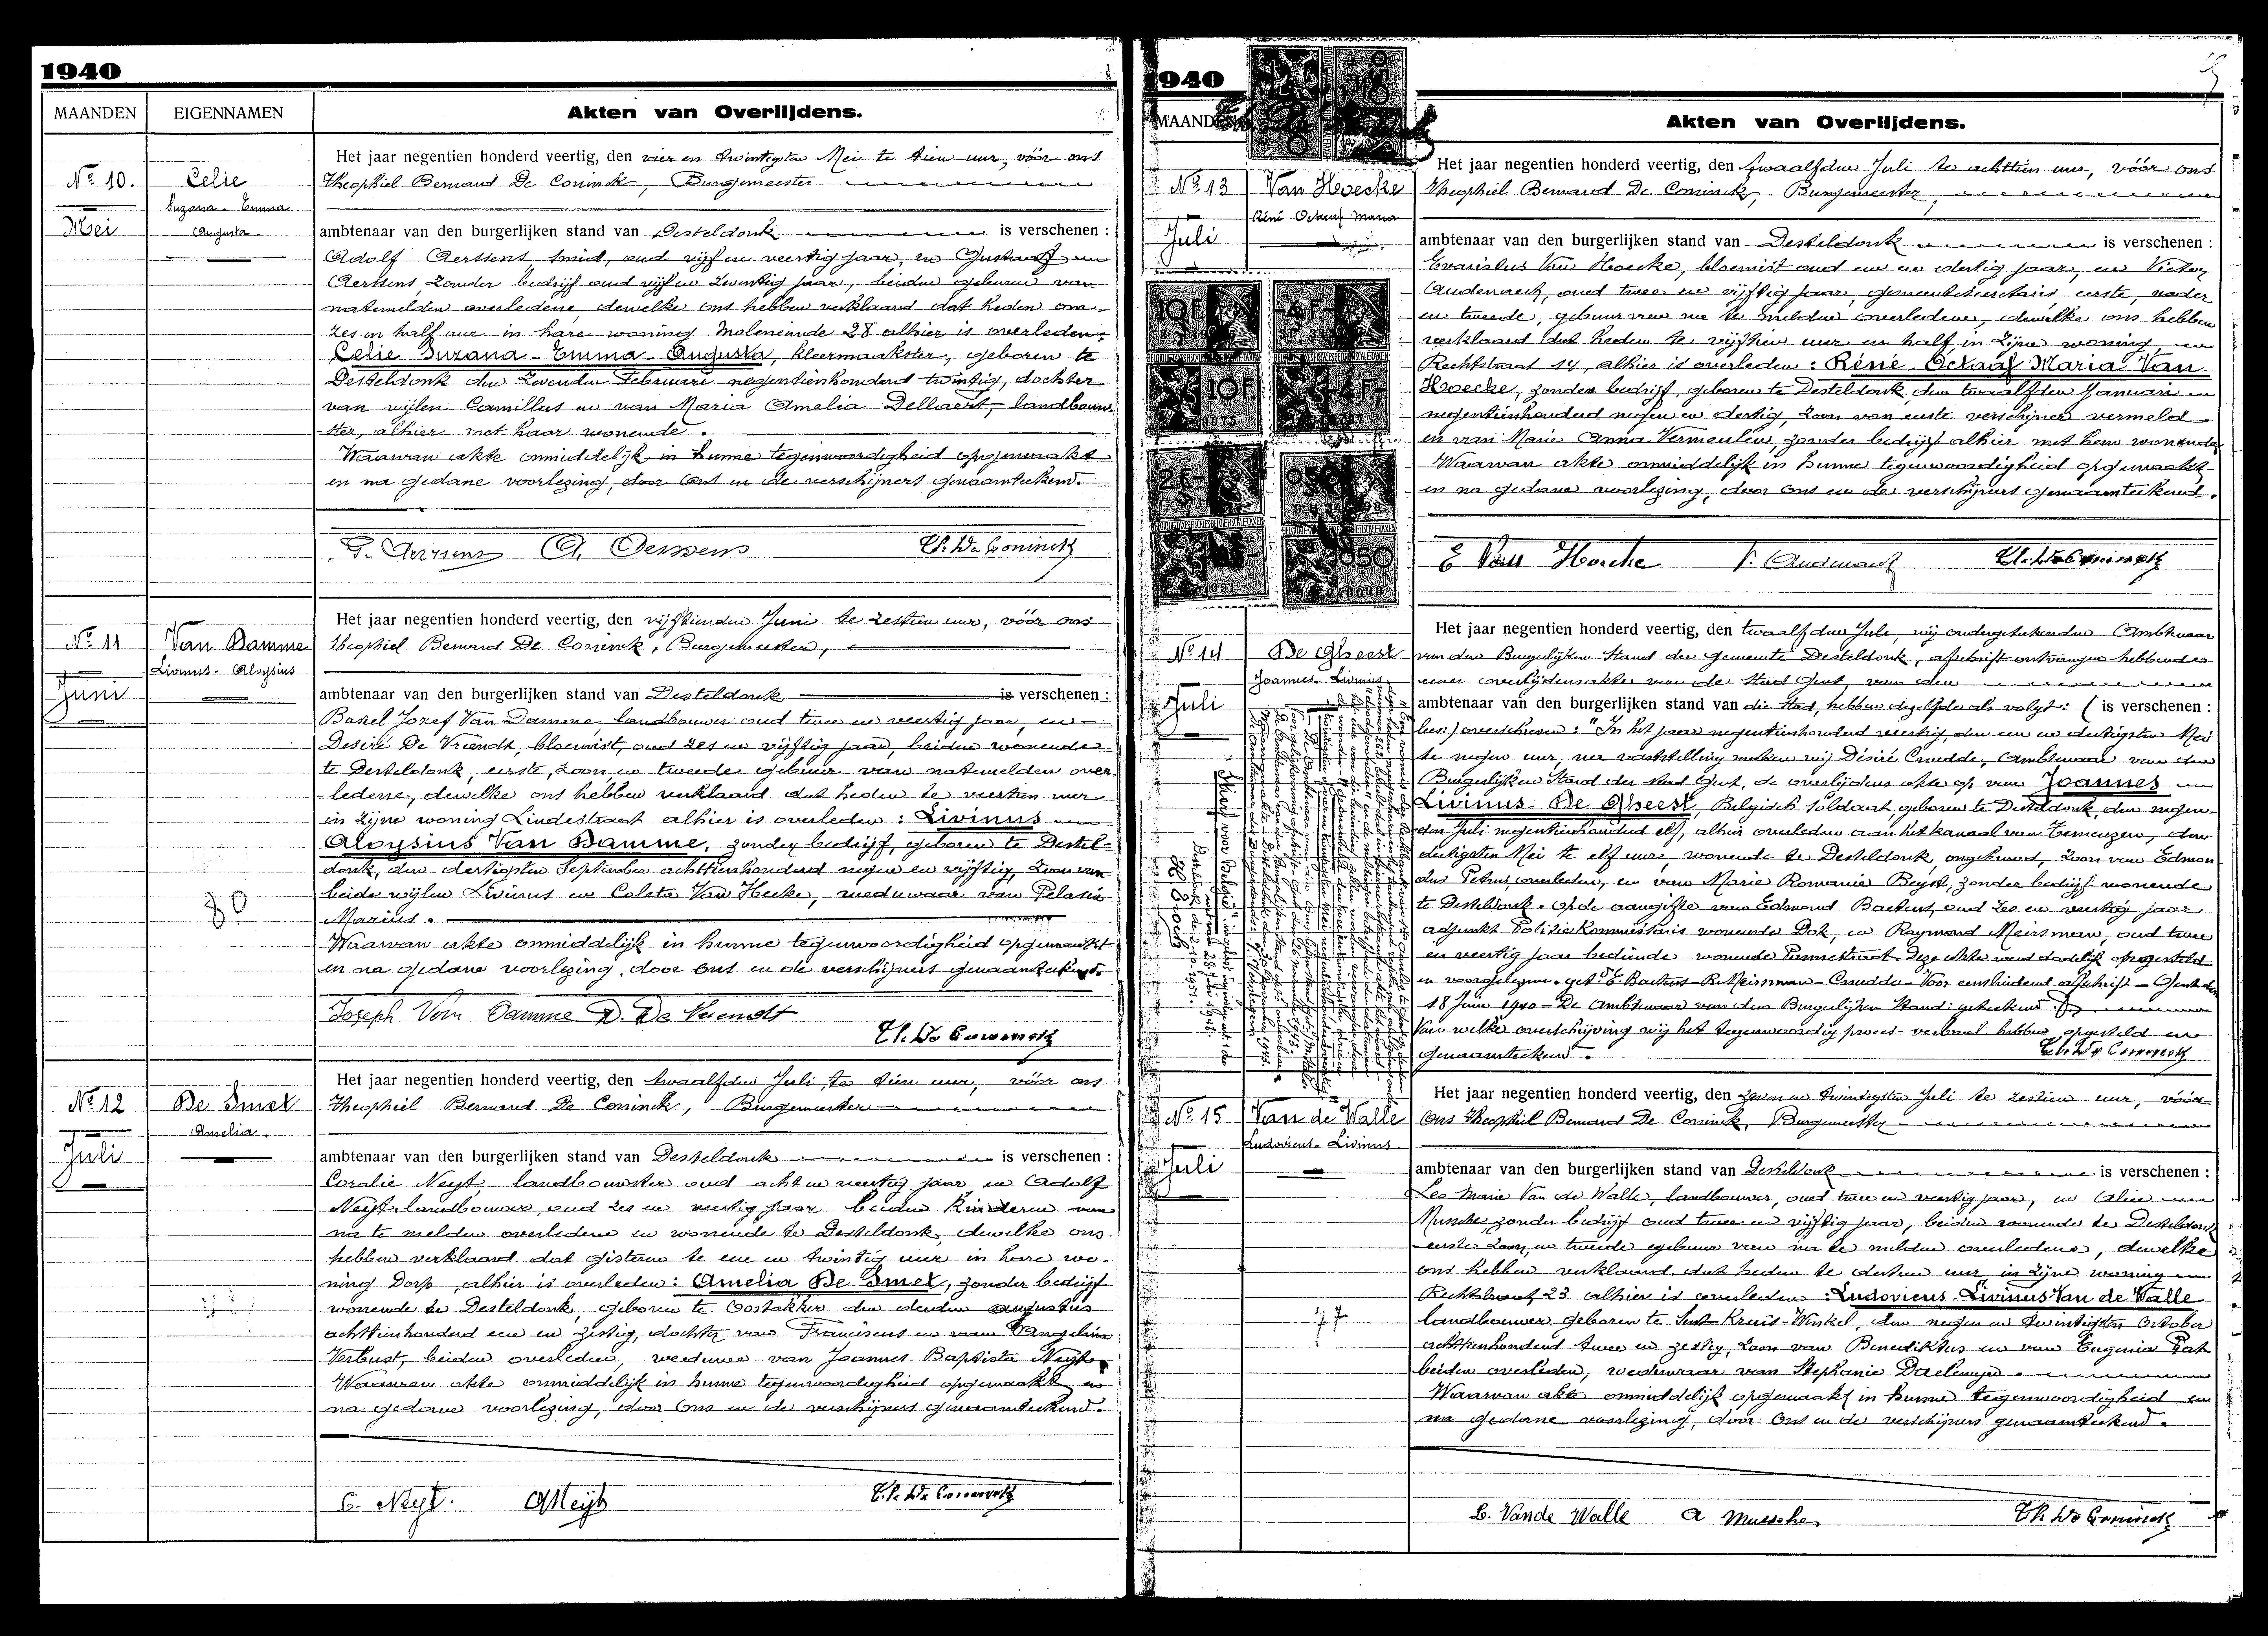 1940
MAANDEN
EIGENNAMEN
Akten van Overlijdens.
No. 10.
Mei
Celie
Suzana - Emma
Augusta
Het jaar negentien honderd veertig, den vier en twintigsten Mei te tien uur, vóór ons
Theophiel Bernard De Coninck, Burgemeester
ambtenaar van den burgerlijken stand van Desteldonk is verschenen :
Adolf Aerssens smid, oud vijf en veertig jaar, en Gustaaf
Aerssens, zonder bedrijf oud vijf en zeventig jaar, beiden geburen van
natemelden overledene, dewelke ons hebben verklaard dat heden om
zes en half uur in hare woning Moleneinde 28 alhier is overleden:
Celie Suzana - Emma - Augusta, kleermaakster, geboren te
Desteldonk den zevenden Februari negentienhonderd twintig, dochter
van wijlen Camillus en van Maria Amelia Dellaert, landbouw-
ster, alhier met haar wonende.
Waarvan akte onmiddelijk in hunne tegenwoordigheid opgemaakt
en na gedane voorlezing, door ons en de verschijners genaamteekend.
G. Aerssens A. Aerssens Th. De Coninck
No. 11
Juni
Van Damme
Livinus - Aloysius
80
Het jaar negentien honderd veertig, den vijftienden Juni te zestien uur, vóór ons
Theophiel Bernard De Coninck, Burgemeester,
ambtenaar van den burgerlijken stand van Desteldonk is verschenen :
Jozef Van Damme landbouwer oud twee en veertig jaar, en
Desiré De Vriendt, bloemist, oud zes en vijftig jaar, beiden wonende
te Desteldonk, eerste, zoon en tweede gebuur van natemelden over-
ledene, dewelke ons hebben verklaard dat heden te veertien uur
in zijne woning Lindestraat alhier is overleden : Livinus
Aloysius Van Damme, zonder bedrijf, geboren te Destel-
donk, den dertigsten September achttienhonderd negen en vijftig, zoon van
beide wijlen Livinus en Coleta Van Hecke, weduwaar van Pelasia
Marius.
Waarvan akte onmiddelijk in hunne tegenwoordigheid opgemaakt
en na gedane voorlezing, door ons en de verschijners genaamteekend.
Joseph Van Damme D. De Vriendt
Th. De Coninck
No. 12
Juli
De Smet
Amelia.
Het jaar negentien honderd veertig, den twaalfden Juli, te tien uur, vóór ons
Theophiel Bernard De Coninck, Burgemeester
ambtenaar van den burgerlijken stand van Desteldonk is verschenen :
Coralie Neyt, landbouwster oud acht en veertig jaar en Adolf
Neyt, landbouwer, oud zes en veertig jaar beiden kinderen van
na te melden overledene en wonende te Desteldonk, dewelke ons
hebben verklaard dat gisteren te een en twintig uur in hare wo-
ning Dorp, alhier is overleden: Amelia De Smet, zonder bedrijf
wonende te Desteldonk, geboren te Oostakker den derden augustus
achttienhonderd een en zestig, dochter van Franciscus en van Angelina
Verbust, beiden overleden, weduwe van Joannes Baptista Neyt.
Waarvan akte onmiddelijk in hunne tegenwoordigheid opgemaakt en
na gedane voorlezing, door ons en de verschijners genaamteekend.
C. Neyt. A Neyt Th. De Coninck
1940
MAANDEN
Akten van Overlijdens.
No. 13
Juli
Van Hoecke
Réné Octaaf Maria
Het jaar negentien honderd veertig, den twaalfden Juli te achttien uur, vóór ons
Theophiel Bernard De Coninck, Burgemeester,
ambtenaar van den burgerlijken stand van Desteldonk is verschenen :
Evaristus Van Hoecke, bloemist oud een en dertig jaar, en Victor
Audenaert, oud twee en vijftig jaar, gemeentesecretaris, eerste, vader
en tweede, gebuur van na te melden overledene, dewelke ons hebben
verklaard dat heden te vijftien uur en half in zijne woning
Rechtstraat 14, alhier is overleden : Réné Octaaf Maria Van
Hoecke, zonder bedrijf, geboren te Desteldonk den twaalfden Januari
negentienhonderd negen en dertig, zoon van eerste verschijner vermeld
en van Marie Anna Vermeulen, zonder bedrijf alhier met hem wonende
Waarvan akte onmiddelijk in hunne tegenwoordigheid opgemaakt
en na gedane voorlezing, door ons en de verschijners genaamteekend.
E Van Hoecke V. Audenaert Th. De Coninck
10F
4F
10F.
2F
No. 14
Juli
De Gheest
Joannes - Livinus
Het jaar negentien honderd veertig, den twaalfden Juli, wij ondergeteekenden Ambtenaar
van den Burgerlijken Stand der gemeente Desteldonk, afschrift ontvangen hebbende
eener overlijdensakte van de Stad Gent, van den
ambtenaar van den burgerlijken stand van die Stad, hebben dezelfde als volgt : ( is verschenen :
lees) overschreven : "In het jaar negentienhonderd veertig, den een en dertigsten Mei
te negen uur, na vaststelling maken wij Désiré Cnudde, Ambtenaar van den
Burgerlijken Stand der Stad Gent, de overlijdens akte op van Joannes
Livinus De Gheest, Belgisch soldaat, geboren te Desteldonk, den negen-
den Juli negentienhonderd elf, alhier overleden aan het kanaal van Terneuzen, den
dertigsten Mei te elf uur, wonende te Desteldonk, ongehuwd, zoon van Edmon-
dus Petrus, overleden, en van Marie Romanie Beyst, zonder bedrijf wonende
te Desteldonk. Op de aangifte van Edmond Backens, oud zes en veertig jaar
adjunkt Politie Kommissaris wonende Dok, en Raymond Meirsman, oud twee
en veertig jaar bediende wonende Pennestraat. Deze akte werd dadelijk opgesteld
en voorgelezen. get. E. Backens - R. Meirsman - Cnudde - Voor eensluidend afschrift - Gent den
18 Juni 1940 - De Ambtenaar van den Burgerlijken Stand: geteekend
Van welke overschrijving wij het tegenwoordig proces-verbaal hebben opgesteld en
genaamteekend.
Th. De Coninck
No. 15
Juli
Van de Walle
Ludovicus - Livinus
77
Het jaar negentien honderd veertig, den zeven en twintigsten Juli te zestien uur, vóór
ons Theophiel Bernard De Coninck, Burgemeester
ambtenaar van den burgerlijken stand van Desteldonk is verschenen :
Leo Marie Van de Walle, landbouwer, oud twee en veertig jaar, en Alice
Mussche, zonder bedrijf oud twee en vijftig jaar, beiden wonende te Desteldonk
eerste zoon, en tweede gebuur van na te melden overledene, dewelke
ons hebben verklaard, dat heden te dertien uur, in zijne woning
Rechtstraat 23 alhier is overleden : Ludovicus - Livinus Van de Walle
landbouwer geboren te Sint-Kruis-Winkel, den negen en twintigsten October
achttienhonderd twee en zestig, zoon van Benediktus en van Eugenia Pat
beiden overleden, weduwaar van Stephanie Daelewyn.
Waarvan akte onmiddelijk opgemaakt in hunne tegenwoordigheid en
na gedane voorlezing, door ons en de verschijners genaamteekend.
L. Vande Walle A Mussche Th. De Coninck